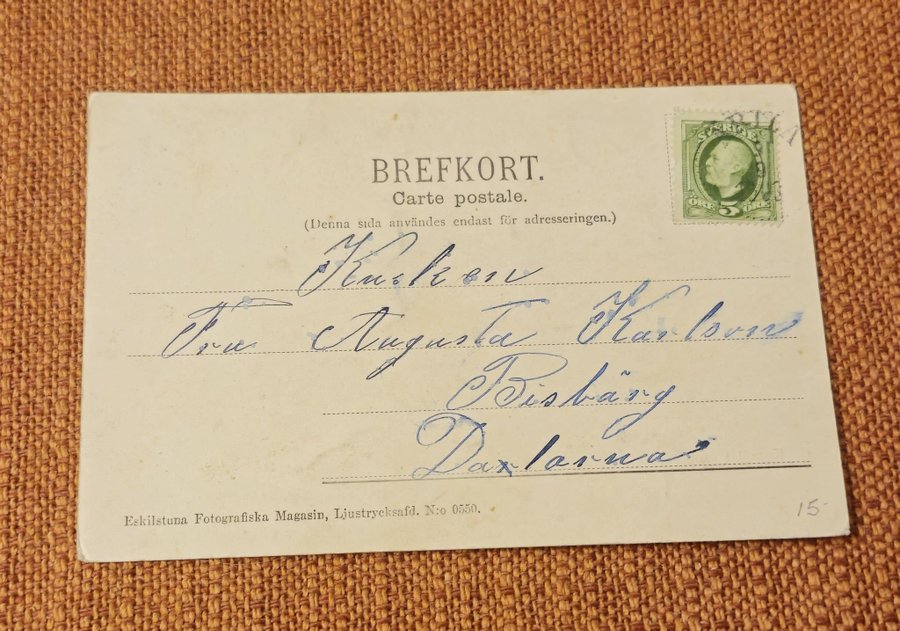 BREFKORT.
Carte postale.
(Denna sida användes endast för adresseringen.)
SVERIGE
5
ÖRE ÖRE
Kusken
Fru Augusta Karlson
Bisbärg
Darlarna
Eskilstuna Fotografiska Magasin, Ljustrycksafd. N:o 0550.
15-